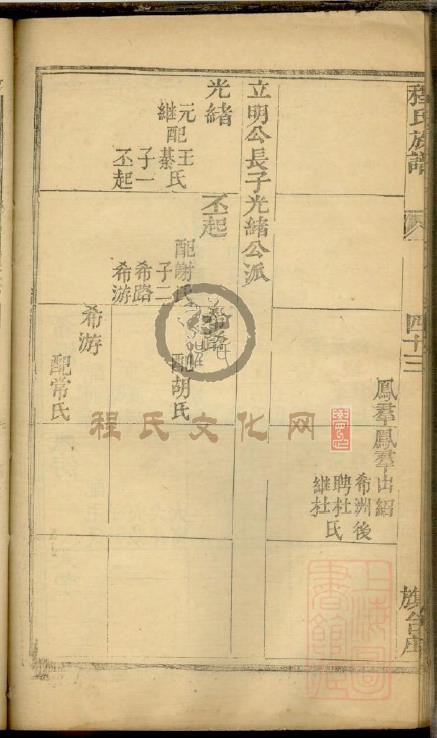 程氏族譜
四十三
旗台庄
鳳羣
鳳羣出紹
希洲後
聘杜氏
繼杜
立明公長子光緒公派
光緒
元配王氏
繼配綦氏
子一
丕起
丕起
配謝氏
子二
希路
希游
希路
配胡氏
希游
配常氏
程氏文化网
上海圖書館藏